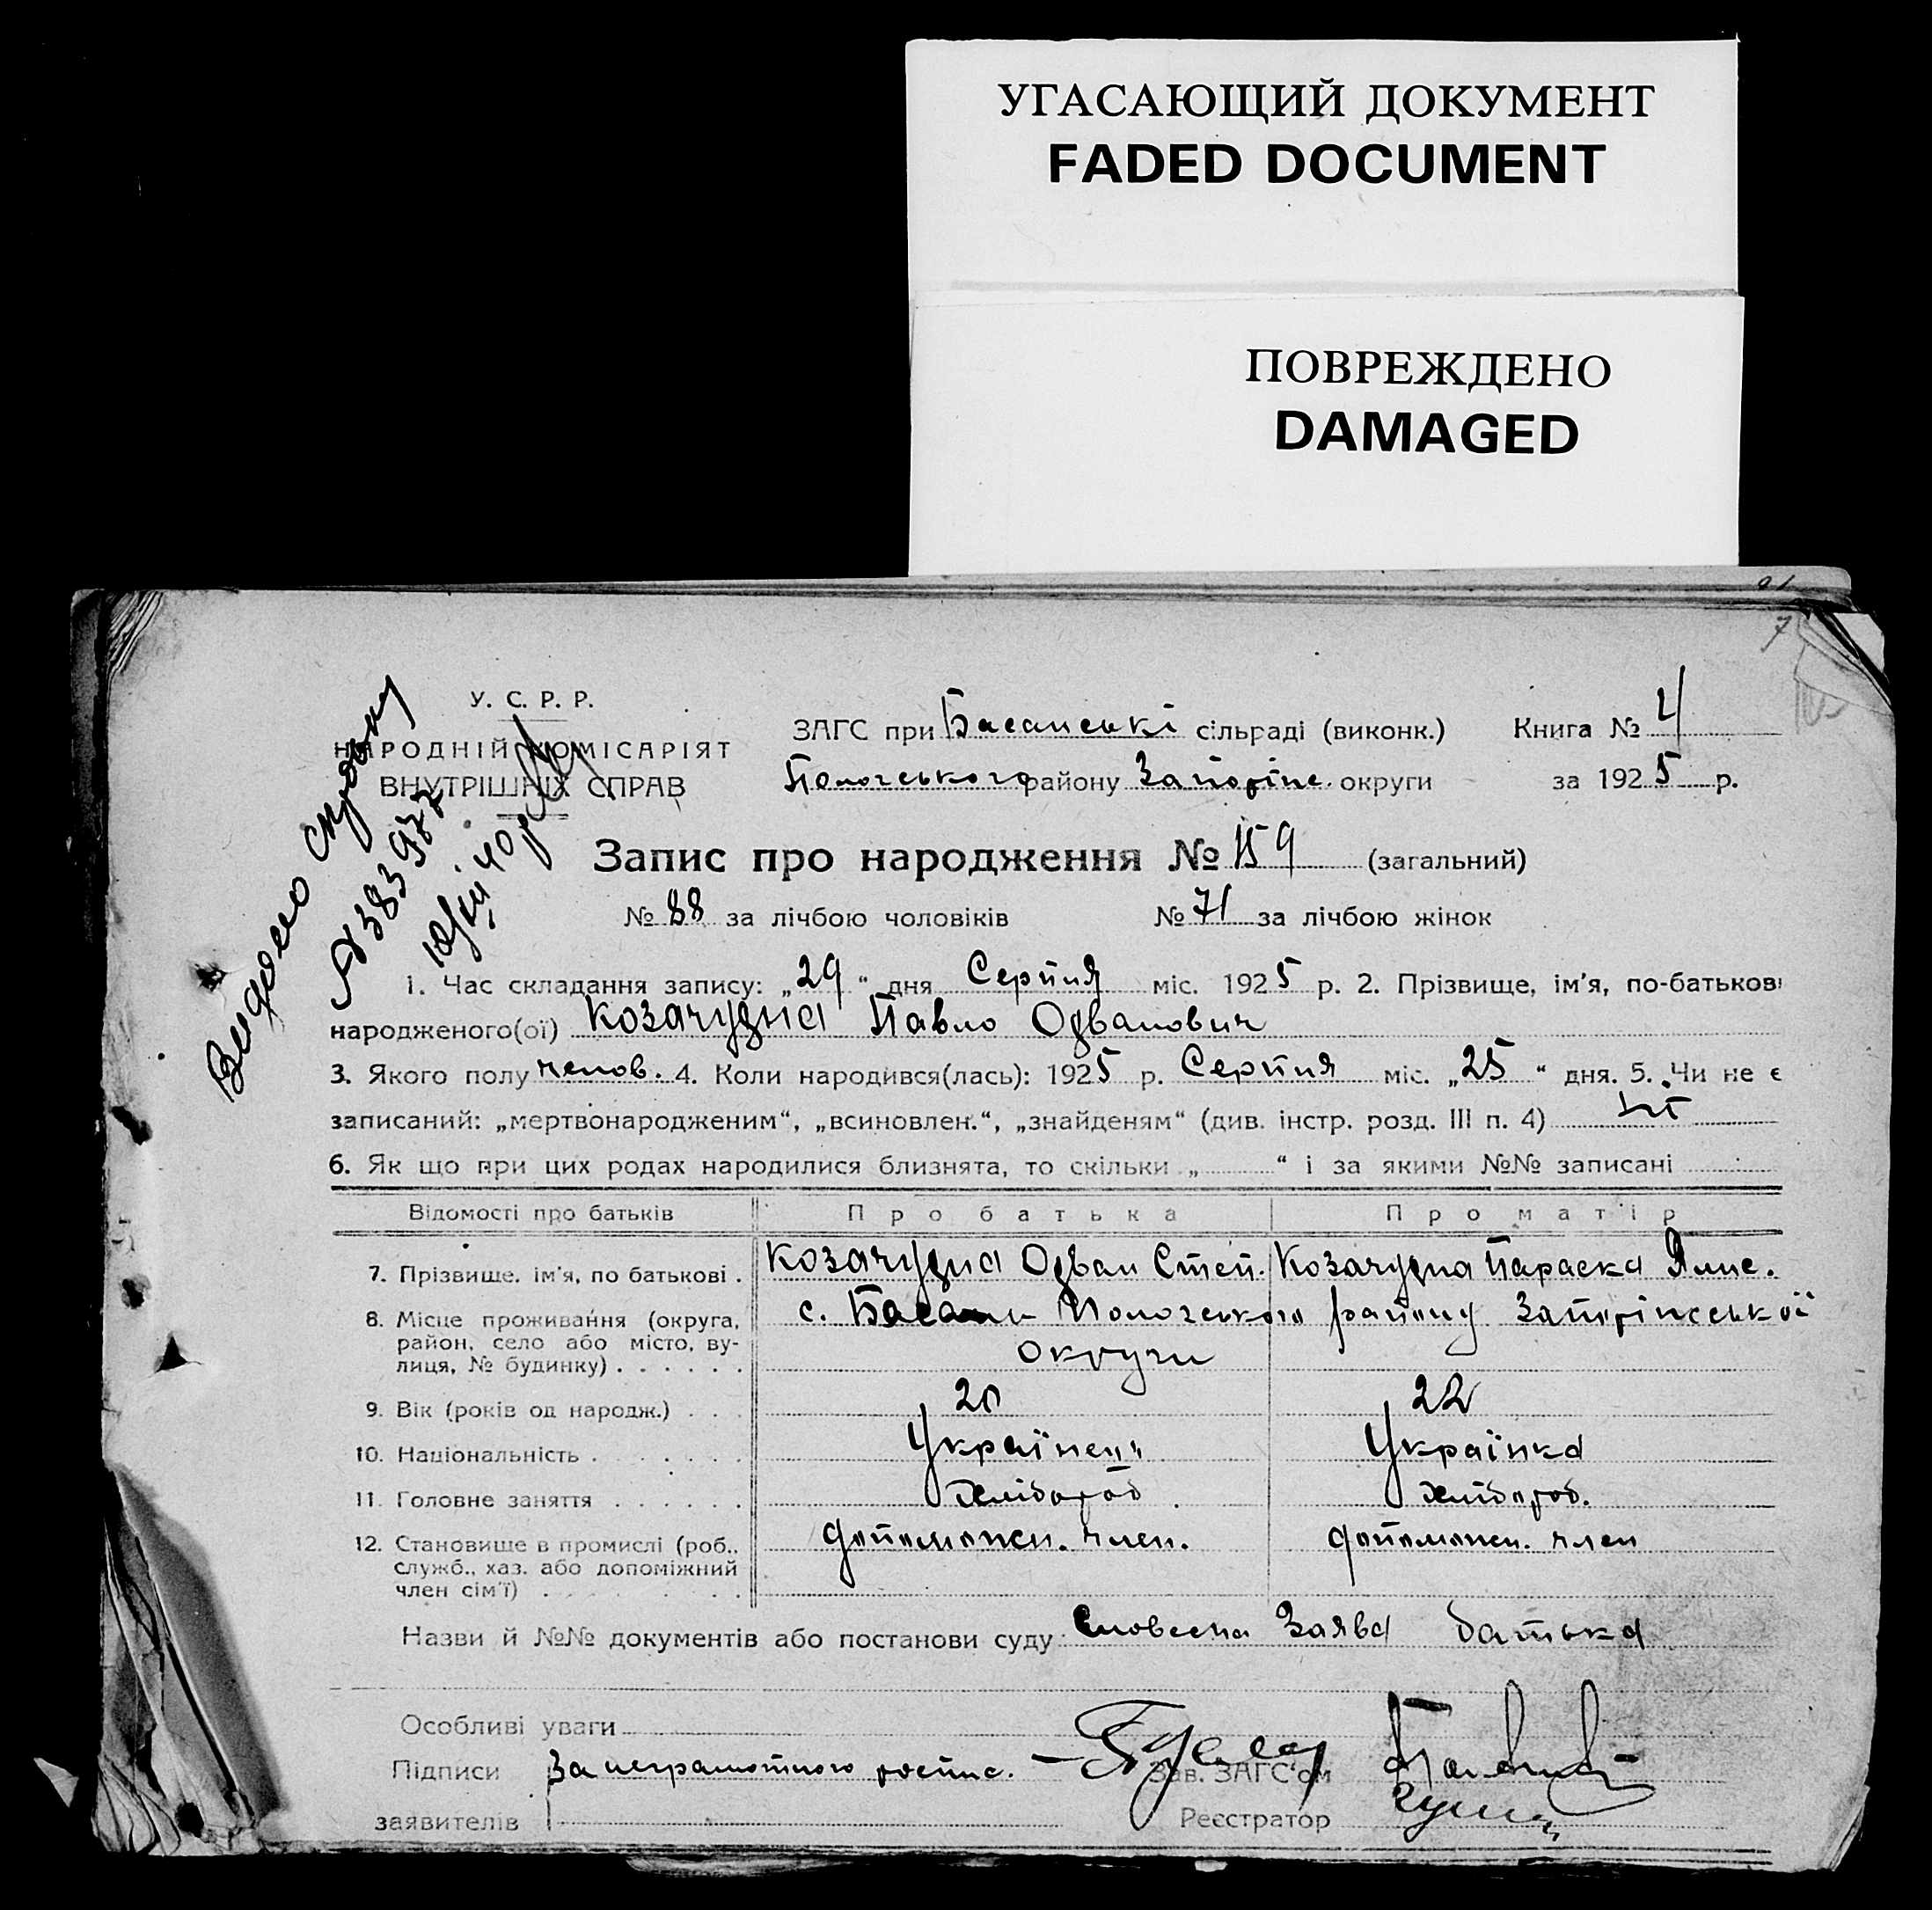 УГАСАЮЩИЙ ДОКУМЕНТ
FADED DOCUMENT
ПОВРЕЖДЕНО
DAMAGED
7
У. С. Р. Р.
НАРОДНІЙ КОМІСАРІЯТ
ВНУТРІШНІХ СПРАВ
Видано
ЗАГС при Басанські сільраді (виконк.) Книга № 4
Пологського району Запоріж. округи за 1925 р.
Запис про народження № 159 (загальний)
№ 88 за лічбою чоловіків № 71 за лічбою жінок
1. Час складання запису: „29“ дня Серпня міс. 1925 р. 2. Прізвище, ім'я, по-батькові
народженого(ої) Козачудна Павло Одванович
3. Якого полу челов. 4. Коли народився(лась): 1925 р. Серпня міс. „25“ дня. 5. Чи не є
записаний: „мертвонародженим“, „всиновлен.“, „знайденям“ (див. інстр. розд. III п. 4) ні
6. Як що при цих родах народилися близнята, то скільки „ “ і за якими №№ записані
Відомості про батьків Про батька Про матір
7. Прізвище, ім'я, по батькові . Козачудна Одван Степ. Козачудна Параска
8. Місце проживання (округа, район, село або місто, вулиця, № будинку) . . . . . . с. Басань Пологського району Запоріжської
округи
9. Вік (років од народж.) . . . 20 22
10. Національність . . . . . . . Українець Українка
11. Головне заняття . . . . . . Хлібороб Хлібороб.
12. Становище в промислі (роб., служб., хаз. або допоміжний член сім'ї) допоможн. член. допоможн. член
Назви й №№ документів або постанови суду: Словесна Заява батька
Особливі уваги
Підписи За неграмотного роспис. Зав. ЗАГС'ом
заявителів Реєстратор